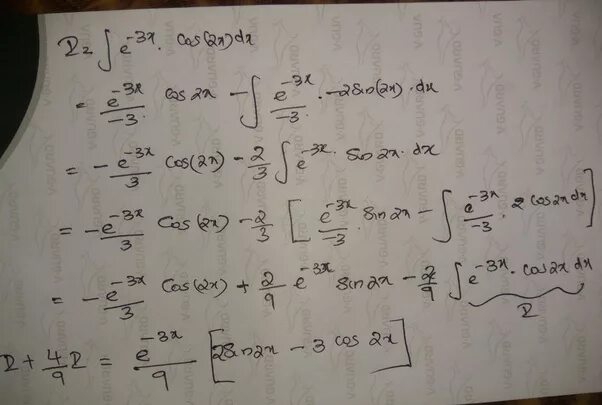 I = ∫ e^{-3x} · cos(2x) dx
= e^{-3x}/-3 · cos 2x - ∫ e^{-3x}/-3 · -2 sin(2x) · dx
= - e^{-3x}/3 cos(2x) - 2/3 ∫ e^{-3x} · sin 2x · dx
= - e^{-3x}/3 cos(2x) - 2/3 [ e^{-3x}/-3 · sin 2x - ∫ e^{-3x}/-3 · 2 cos 2x dx ]
= - e^{-3x}/3 cos(2x) + 2/9 e^{-3x} sin 2x - 2/9 ∫ e^{-3x} · cos 2x dx
I
I + 4/9 I = e^{-3x}/9 [2 sin 2x - 3 cos 2x]